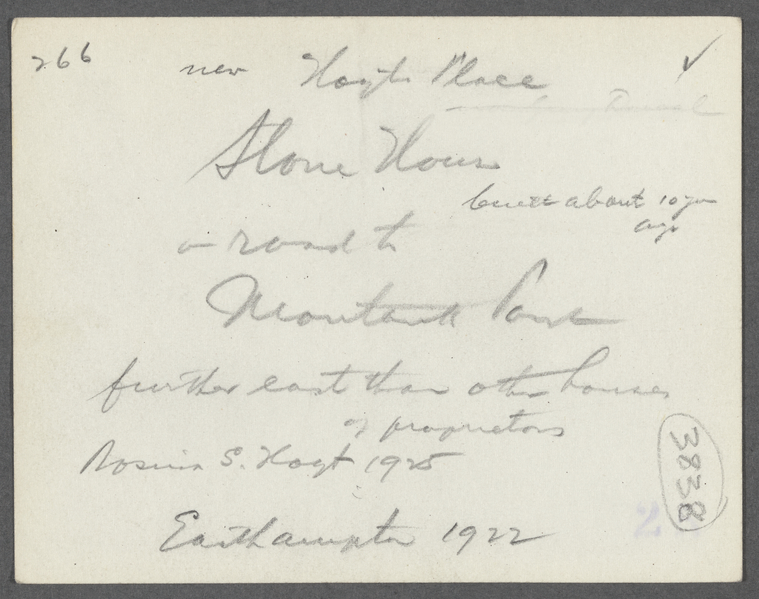 266
new Hoyt Place
Stone House
built about 10 yrs
ago
on road to
Montauk Point
further east than other houses
of proprietors
Rosina S. Hoyt 1925
Easthampton 1922
3838
2